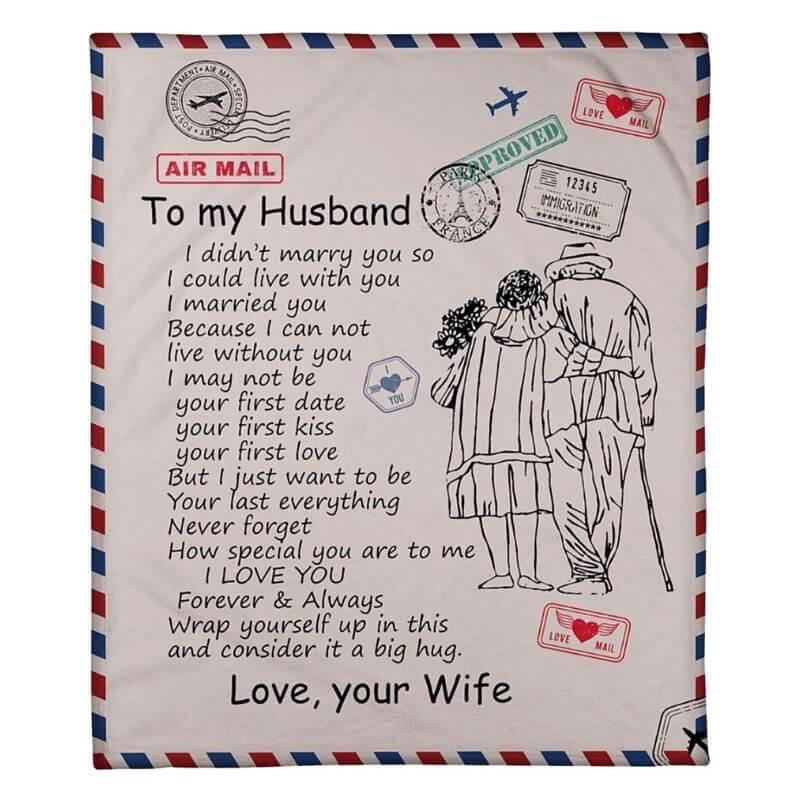 POST DEPARTMENT • AIR MAIL • SPECIAL DELIVERY •
AIR MAIL
LOVE MAIL
APPROVED
PARIS
FRANCE
12345
IMMIGRATION
***********
To my Husband
I didn't marry you so
I could live with you
I married you
Because I can not
live without you
I may not be
your first date
your first kiss
your first love
But I just want to be
Your last everything
Never forget
How special you are to me
I LOVE YOU
Forever & Always
Wrap yourself up in this
and consider it a big hug.
Love, your Wife
I
YOU
LOVE MAIL